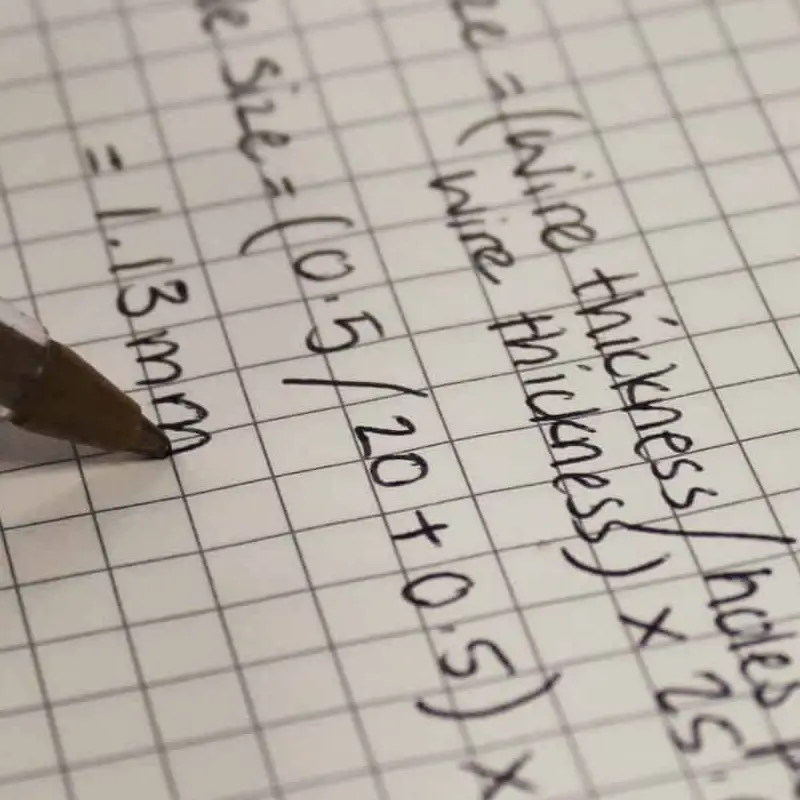 = (wire thickness / holes
wire thickness) × 25.
size = (0.5 / 20 + 0.5) ×
= 1.13mm